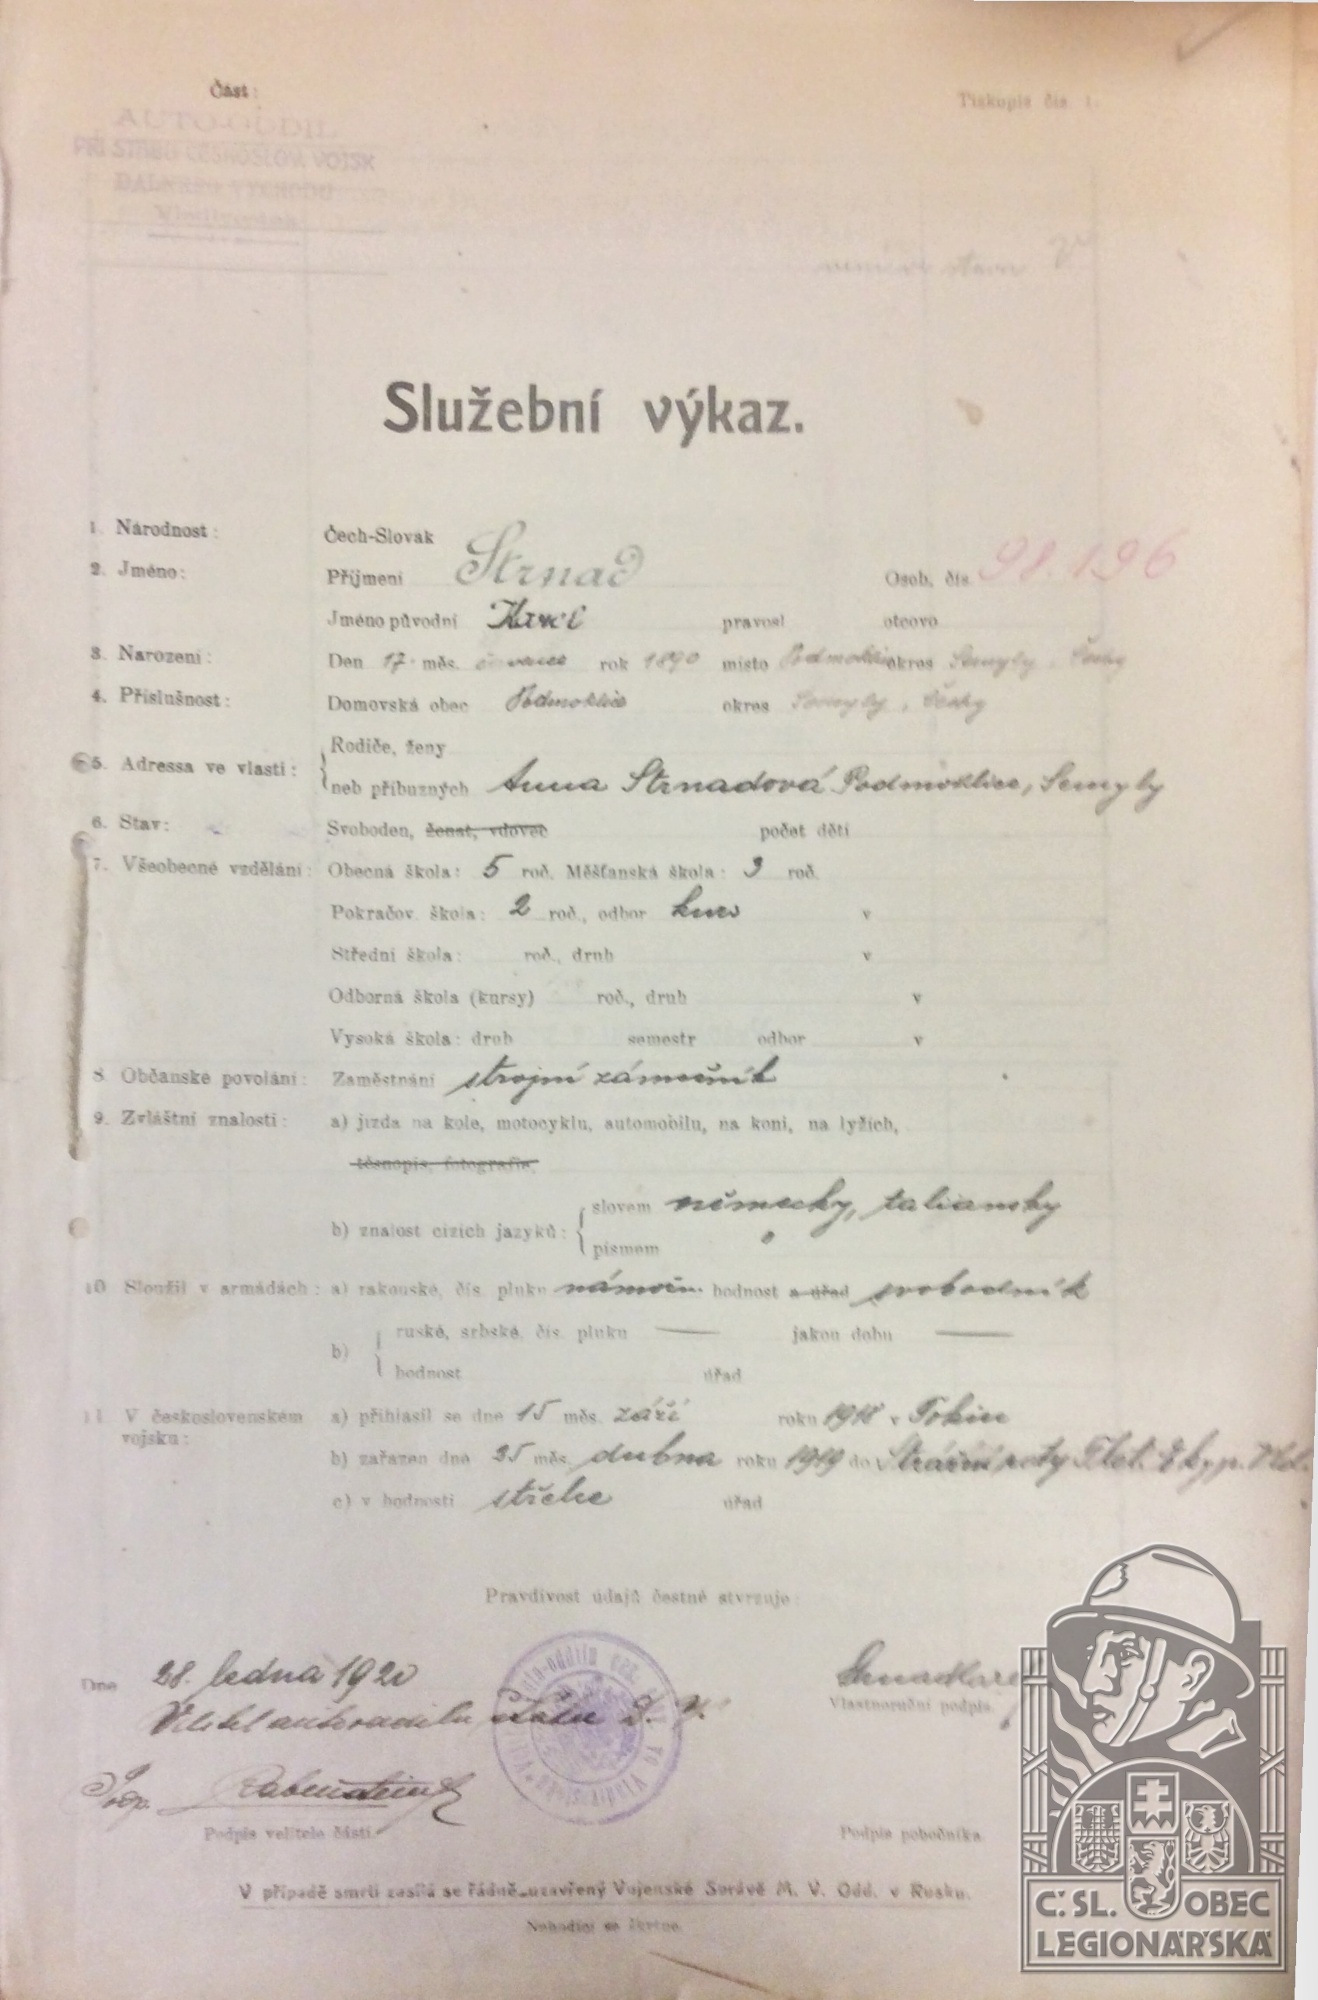 Část:
Tiskopis čís. 1.
AUTO-ODDÍL
PŘI ŠTÁBU ČESKOSLOV. VOJSK
DALNÉHO VÝCHODU
Služební výkaz.
1. Národnost: Čech-Slovák
2. Jméno: Příjmení Strnad Osob. čís. 98.196
Jméno původní Karel pravosl otcovo
3. Narození: Den 17. měs. července rok 1890 místo Podmoklice okres Semyly, Čechy
4. Příslušnost: Domovská obec Podmoklice okres Semyly, Čechy
5. Adressa ve vlasti: Rodiče, ženy
neb příbuzných Anna Strnadová Podmoklice, Semyly
6. Stav: Svoboden, ženat, vdovec počet dětí
7. Všeobecné vzdělání: Obecná škola: 5 roč. Měšťanská škola: 3 roč.
Pokračov. škola: 2 roč., odbor kurs v
Střední škola: roč., druh v
Odborná škola (kursy) roč., druh v
Vysoká škola: druh semestr odbor v
8. Občanské povolání: Zaměstnání strojní zámečník
9. Zvláštní znalosti: a) jízda na kole, motocyklu, automobilu, na koni, na lyžích,
těsnopis, fotografie,
b) znalost cizích jazyků: slovem německy, taliansky
písmem
10. Sloužil v armádách: a) rakouské, čís. pluku námořn. hodnost a úřad svobodník
b) ruské, srbské, čís. pluku — jakou dobu —
hodnost úřad
11. V československém vojsku: a) přihlásil se dne 15 měs. září roku 1918 v Tokiu
b) zařazen dne 25 měs. dubna roku 1919 do Strážní roty Tlet. Ekyp. Vld.
c) v hodnosti střelce úřad
Pravdivost údajů čestně stvrzuje:
Dne 28. ledna 1920
Strnad Karel
Vlastnoruční podpis.
Velitel autooddílu štábu D. V.
Podp. Rabenstein
Podpis velitele části.
Podpis pobočníka
V případě smrti zasílá se řádně uzavřený Vojenské Správě M. V. Odd. v Rusku.
Nehodící se škrtne.
Č. SL. OBEC
LEGIONÁŘSKÁ